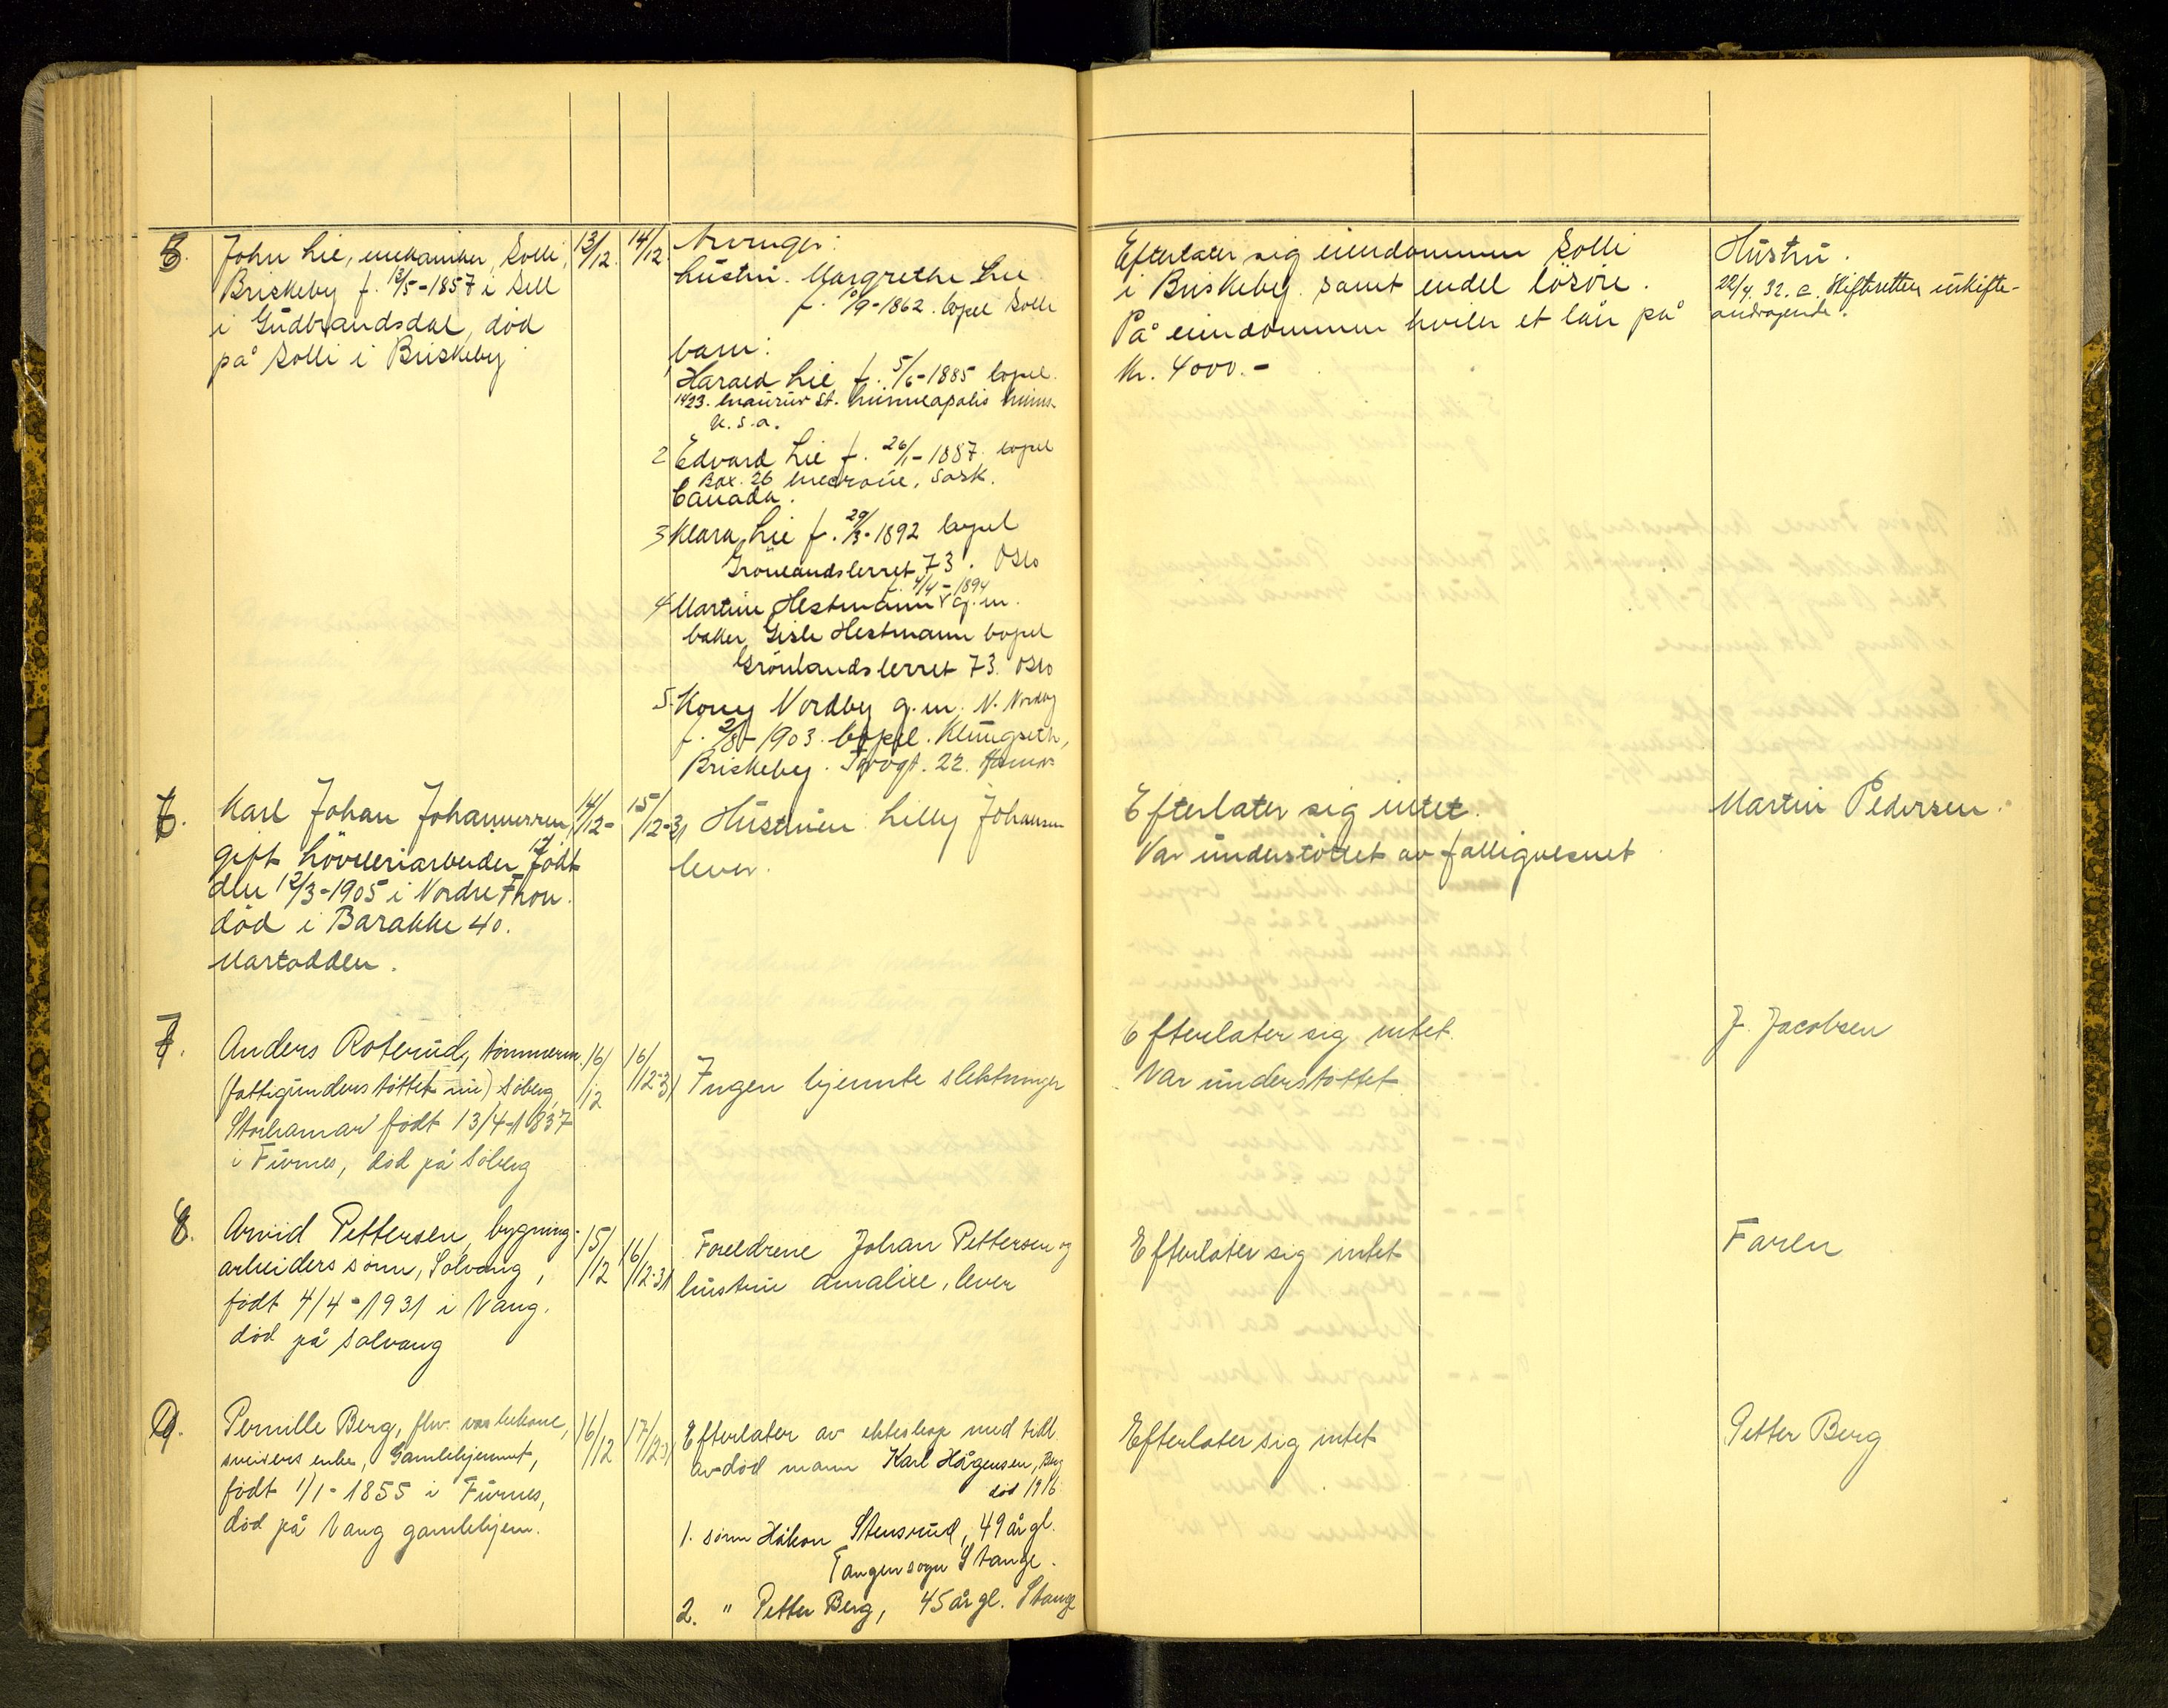 5. John Lie, mekaniker, Solli, 13/12. 14/12.
Briskeby f. 13/5-1857 i Sell
i Gudbrandsdal, död
på Solli i Briskeby
Arvinger:
hustru. Margrethe Lie
f. 9/9-1862. bopel Solli
barn:
Harald Lie f. 5/6-1885 bopel.
1423. St. Minneapolis Minns.
U.S.a.
2 Edvard Lie f. 26/1-1887. bopel
Box. 26 Sask.
Canada.
3 Klara Lie f. 29/3-1892 bopel
Grönlandslerret 73. Oslo
f. 4/4-1894
4 Martin Hestmann g.m.
baker Gisle Hestmann bopel
Grönlandslerret 73. Oslo
5. Nordby g.m. N. Nordby
f. 2/8-1903. bopel. Klungseth,
Briskeby. 22. Hamar
Efterlater sig eiendommen Solli
i Briskeby. samt endel lösöre.
På eiendommen hviler et lån på
Kr. 4000.-
Hustru.
22/4. 32. Skifteretten uskifte-
andragende.
6. Karl Johan Johannessen, 14/12- 15/12-31
gift hövleriarbeider födt
den 12/3-1905 i Nordre Fron.
död i Barakke 40.
Martodden.
Hustruen Lilly Johansen
lever.
Efterlater sig intet.
Var understöttet av fattigvesnet
Martin Pedersen.
7. Anders Roterud, tømmerm. 16/12 16/12-31
(fattigunderstøttet nu) Söberg
Storhamar født 13/4-1837
i Furnes, död på Söberg
Ingen kjennte slektninger
Efterlater sig intet.
Var understøttet
J. Jacobsen
8. Arvid Pettersen, bygning- 15/12 16/12-31
arbeiders sønn, Solvang,
födt 4/4-1931 i Vang.
död på Solvang
Foreldrene Johan Pettersen og
hustru Amalie, lever
Efterlater sig intet
Faren
9. Pernille Berg, fhv. vaskekone, 16/12 17/12-31
sveisers enke, Gamlehjemmet,
födt 1/1-1855 i Furnes,
død på Vang gamlehjem.
Efterlater av ekteskap med tidl.
avdöd mann Karl Hågensen, Berg
död 1916
1. sønn Håkon Stensrud, 49 år gl.
Tangen sogn Stange.
2. " Petter Berg, 45 år gl. Stange
Efterlater sig intet
Petter Berg